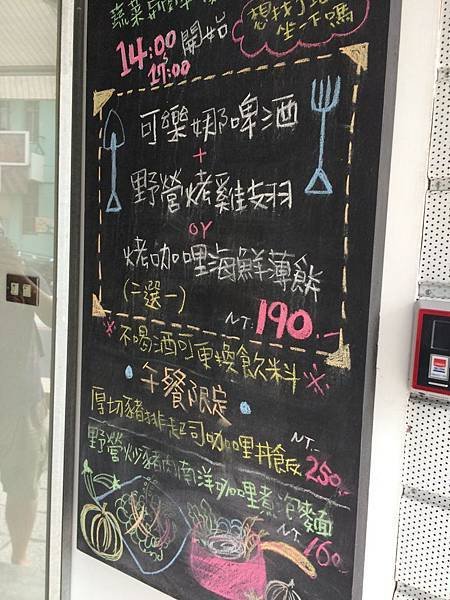 14:00 開始
17:00
坐下嗎
可樂娜啤酒
+
野營烤雞翅
or
烤咖哩海鮮薄餅
(二選一)
NT. 190.-
※不喝酒可更換飲料※
午餐限定
厚切豬排起司咖哩丼飯 NT. 250.-
野營炒豬肉南洋咖哩煮泡麵
NT. 160.-